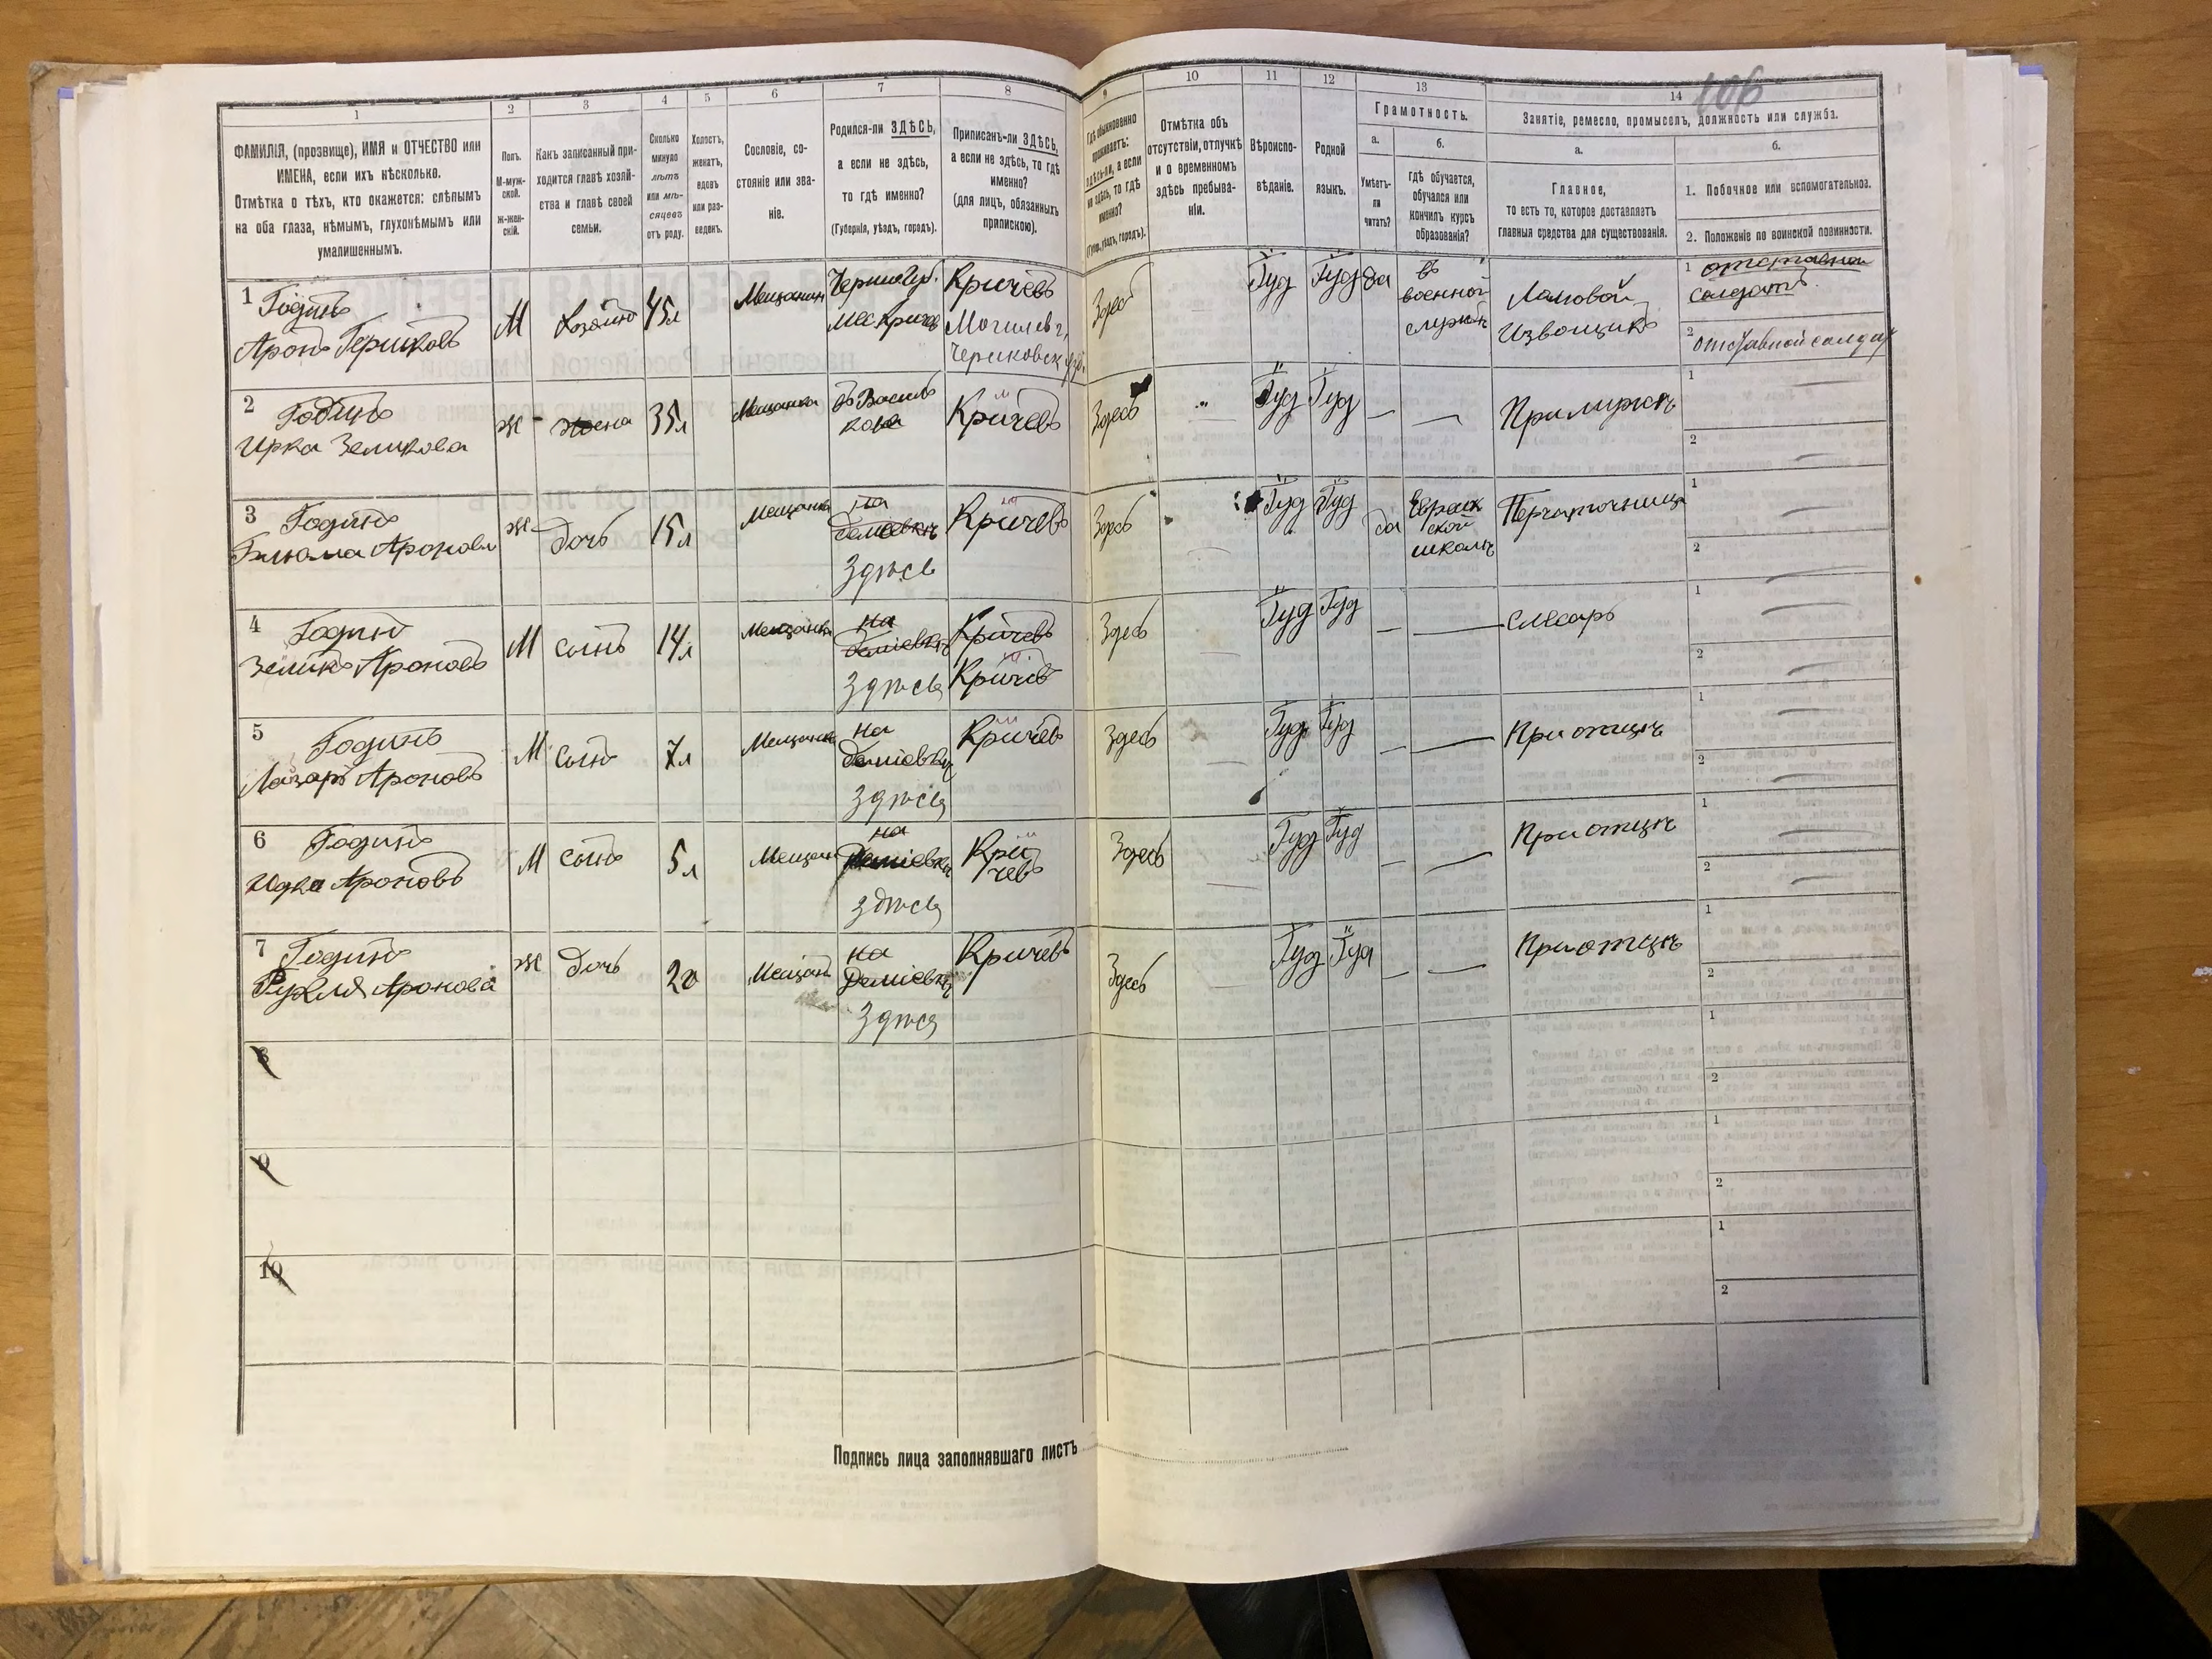 106
1
2
3
4
5
6
7
8
9
10
11
12
13
14
ФАМИЛІЯ, (прозвище), ИМЯ и ОТЧЕСТВО или
ИМЕНА, если ихъ нѣсколько.
Отмѣтка о тѣхъ, кто окажется: слѣпымъ
на оба глаза, нѣмымъ, глухонѣмымъ или
умалишеннымъ.
Полъ.
М-муж-
ской.
Ж-жен-
скій.
Какъ записанный при-
ходится главѣ хозяй-
ства и главѣ своей
семьи.
Сколько
минуло
лѣтъ
или мѣ-
сяцевъ
отъ роду.
Холостъ,
женатъ,
вдовъ
или раз-
веденъ.
Сословіе, со-
стояніе или зва-
ніе.
Родился-ли ЗДѢСЬ,
а если не здѣсь,
то гдѣ именно?
(Губернія, уѣздъ, городъ).
Приписанъ-ли ЗДѢСЬ,
а если не здѣсь, то гдѣ
именно?
(для лицъ, обязанныхъ
припискою).
Гдѣ обыкновенно
проживаетъ:
здѣсь-ли, а если
не здѣсь, то гдѣ
именно?
(Губ., уѣздъ, городъ).
Отмѣтка объ
отсутствіи, отлучкѣ
и о временномъ
здѣсь пребыва-
ніи.
Вѣроиспо-
вѣданіе.
Родной
языкъ.
Грамотность.
а.
Умѣетъ-
ли
читать?
б.
гдѣ обучается,
обучался или
кончилъ курсъ
образованія?
Занятіе, ремесло, промыселъ, должность или служба.
а.
Главное,
то есть то, которое доставляетъ
главныя средства для существованія.
б.
1. Побочное или вспомогательное.
2. Положеніе по воинской повинности.
1
Годинъ
Аронъ Гершковъ
М
Хозяинъ
45 л
Мещанинъ
Мес Кричев
Кричевъ
Могилев г,
Чериковск уѣз.
Здесь
Іуд
Іуд
да
въ
военной
службѣ
Ломовой
Извощикъ
1 отставной
солдатъ
2 отставной солдат
2
Годинъ
Ирка Зеликова
Ж
жена
35 л
Мещанка
Кричевъ
Здесь
Іуд
Іуд
При мужѣ
1
2
3
Годинъ
Блюма Аронова
Ж
дочь
15 л
Мещанка
на
Деміевкѣ
Здѣсь
Кричевъ
Здесь
Іуд
Іуд
да
Еврейск
ской
школѣ
Перчаточница
1
2
4
Годинъ
Зеликъ Ароновъ
М
сынъ
14 л
Мещанинъ
на
Деміевкѣ
Здѣсь
Кричевъ
Кричевъ
Здесь
Іуд
Іуд
Слесарь
1
2
5
Годинъ
Лазарь Ароновъ
М
сынъ
7 л
Мещанинъ
на
Деміевкѣ
Здѣсь
Кричевъ
Здесь
Іуд
Іуд
При отцѣ
1
2
6
Годинъ
Юдка Ароновъ
М
сынъ
5 л
Мещанинъ
на
Деміевкѣ
Здѣсь
Кри
чевъ
Здесь
Іуд
Іуд
При отцѣ
1
2
7
Годинъ
Рухля Аронова
Ж
дочь
2 г
Мещан
на
Деміевкѣ
Здѣсь
Кричевъ
Здесь
Іуд
Іуд
При отцѣ
1
2
8
1
2
9
1
2
10
1
2
Подпись лица заполнявшаго листъ